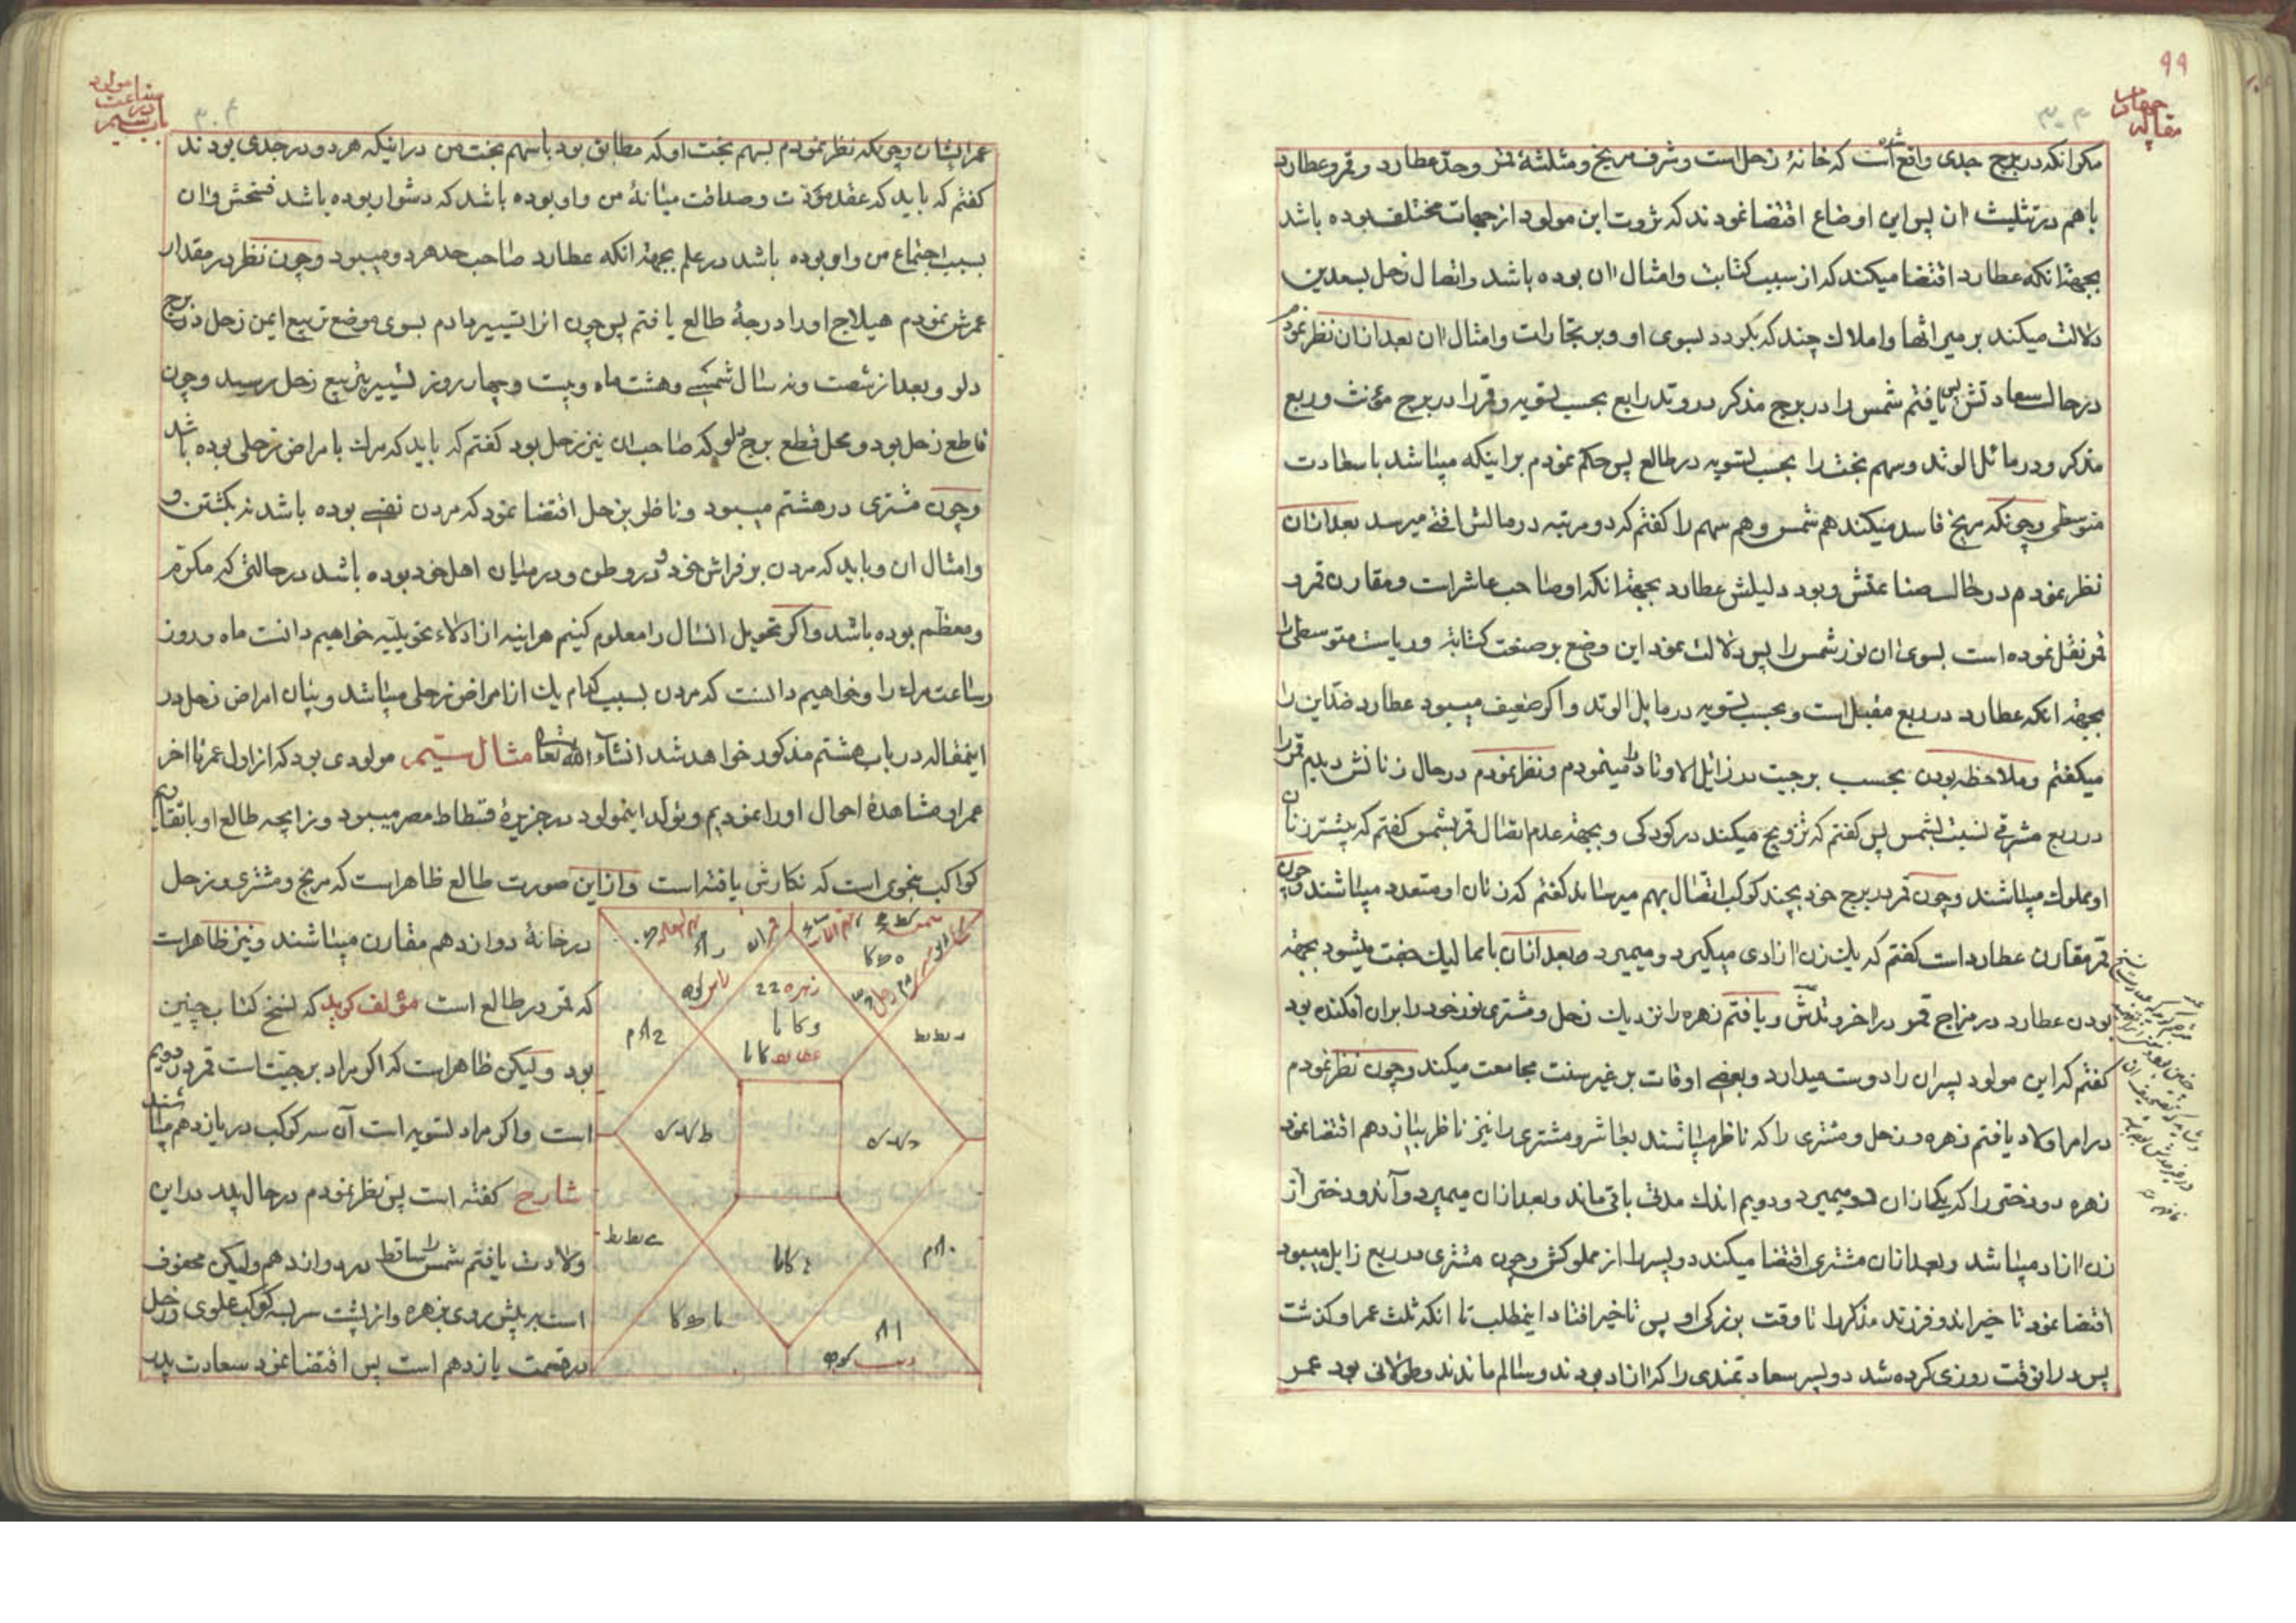 ۹۹
مقاله چهارم
مکر انکه در برج جدی واقع شده است که خانهٔ زحل است و شرف مریخ و مثلثهٔ قمر و حد عطارد و قمر و عطارد
با هم در تثلیث ان پس این اوضاع اقتضا نمودند که ثروت این مولود از جهات مختلف بوده باشد
بجهة انکه عطارد اقتضا میکند که از سبب کتابت و امثال ان بوده باشد و اتصال زحل بسعدین
دلالت میکند بر میراثها و املاک چند که بکردد بسوی او و بر تجارات و امثال ان بعد از ان نظر نمودم
در حال سعادتش پس یافتم شمس را در برج مذکر در وتد رابع بحسب تسویه و قمر را در برج مؤنث و ربع
مذکر و در مائل الوتد و سهم بخت را بحسب تسویه در طالع پس حکم نمودم بر اینکه میباشد با سعادت
متوسطی و چونکه مریخ فاسد میکند هم شمس و هم سهم را کفتم که دو مرتبه در مالش افتی میرسد بعد از ان
نظر نمودم در حال صناعتش و بود دلیلش عطارد بجهة انکه او صاحب عاشر است و مقارن قمر و
قمر نقل نموده است بسوی ان نور شمس را پس دلالت نمود این وضع بر صنعت کتابة و ریاست متوسطی را
بجهة انکه عطارد در ربع مقبل است و بحسب تسویه در مایل الوتد و اکر ضعیف میبود عطارد ضد این را
میکفتم و ملاحظه بودن بحسب برجیت در زائل الاوتاد را مینمودم و نظر نمودم در حال زنانش دیدم قمر را
در ربع مشرقی نسبت بشمس پس کفتم که تزویج میکند در کودکی و بجهة عدم اتصال قمر بشمس کفتم که بیشتر زنان
او مملوک میباشند و چون قمر در برج خود بچند کوکب اتصال بهم میرساند کفتم که زنان او متعدد میباشند و چون
قمر مقارن عطارد است کفتم که یک زن ازادی میکیرد و میمیرد و بعد از ان با ممالیک جفت میشود بجهة
بودن عطارد در مزاج قمر در اخر وتدش و یافتم زهره را نزدیک زحل و مشتری نور خود را بر ان افکنده بود
کفتم که این مولود پسران را دوست میدارد و بعضی اوقات بر غیر سنت مجامعت میکند و چون نظر نمودم
در امر اولاد یافتم زهره و زحل و مشتری را که ناظر میباشند بعاشر و مشتری را نیز ناظر بیازدهم اقتضا نمود
زهره دو دختر را که یکی از ان دو میمیرد و دویم اندک مدتی باقی ماند و بعد از ان میمیرد و آندو دختر از
زن ازاد میباشد و بعد از ان مشتری اقتضا میکند دو پسر را از مملوکش و چون مشتری در ربع زایل میبود
اقتضا نمود تاخیر اندو فرزند مذکر را تا وقت بزرکی او پس تاخیر افتاد اینمطلب تا انکه ثلث عمر او کذشت
پس در انوقت روزی کرده شد دو پسر سعادتمندی را که ازاد بودند و سالم ماندند و طولانی بود عمر
باب سیم در صناعت مولود
عمر ایشان و چونکه نظر نمودم بسهم بخت او که مطابق بود با سهم بخت من در اینکه هر دو در جدی بودند
کفتم که باید که عقد مؤدت و صداقت میانهٔ من و او بوده باشد که دشوار بوده باشد فسخش و ان
بسبب اجتماع من و او بوده باشد در علم بجهة انکه عطارد صاحب حد هر دو میبود و چون نظر در مقدار
عمرش نمودم هیلاج او را درجهٔ طالع یافتم پس چون انرا تسییر دادم بسوی موضع تربیع ایمن زحل در برج
دلو و بعد از شصت و نه سال شمسی و هشت ماه و بیست و چهار روز تسییر بتربیع زحل رسید و چون
قاطع زحل بود و محل قطع برج دلو که صاحب ان نیز زحل بود کفتم که باید که مرک بامراض زحلی بوده باشد
و چون مشتری در هشتم میبود و ناظر بزحل اقتضا نمود که مردن نفسی بوده باشد نه بکشتن و
و امثال ان و باید که مردن بر فراش خود و در وطن و در میان اهل خود بوده باشد در حالتی که مکرّم
و معظّم بوده باشد و اکر تحویل انسال را معلوم کنیم هراینه از ادلاء تحویلیه خواهیم دانست ماه و روز
و ساعت مرک را و خواهیم دانست که مردن بسبب کدام یک از امراض زحلی میباشد و بیان امراض زحل در
اینمقاله در باب هشتم مذکور خواهد شد انشآء الله تعالی مثال سیم مولودی بود که از اول عمر تا اخر
عمر او مشاهدهٔ احوال او را نمودیم و تولد اینمولود در جزیرهٔ فسطاط مصر میبود و زایچه طالع او با تقاویم
کواکب بنحوی است که نکارش یافته است و از این صورت طالع ظاهر است که مریخ و مشتری و زحل
در خانهٔ دوازدهم مقارن میباشند و نیز ظاهر است
که قمر در طالع است مؤلف کوید که نسخ کتاب چنین
بود ولیکن ظاهر است که اکر مراد برجیت است قمر در دویم
است و اکر مراد تسویه است آن سه کوکب در یازدهم میباشند
شارح کفته است پس نظر نمودم در حال پدر در این
ولادت یافتم شمس را ساقط در دوازدهم ولیکن محفوف
است بر پیش روی بزهره و از پشت سر بسه کوکب علوی و زحل
در قسمت یازدهم است پس اقتضا نمود سعادت پدر
زهره